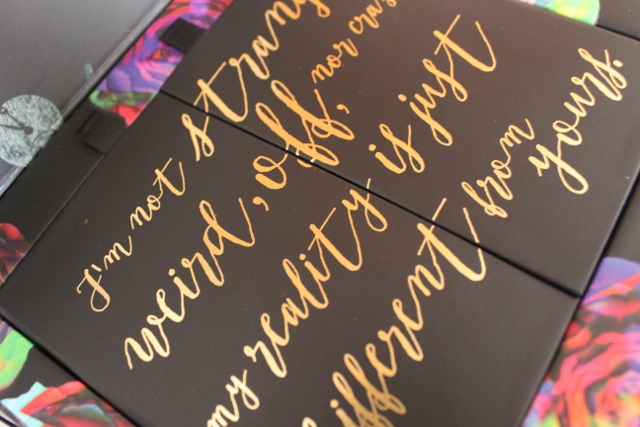 I'm not strang
weird, off, nor craz
my reality is just
ifferent from yours.